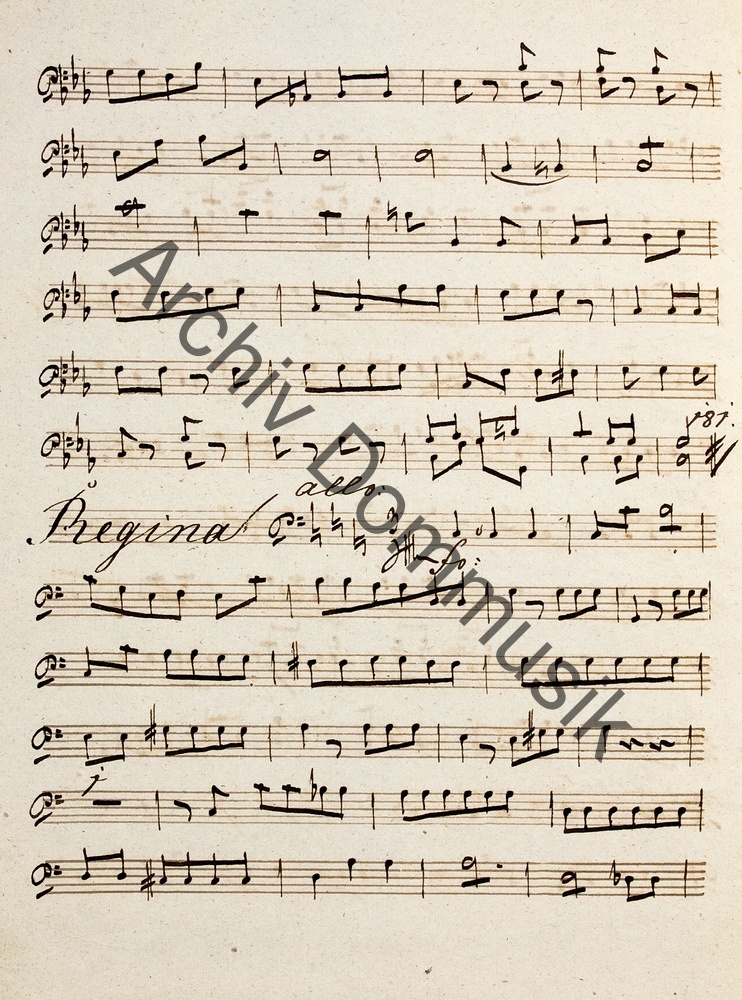 187.
Regina allo:
fo:
Archiv Dommusik